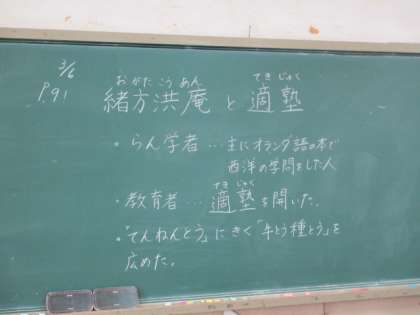 3/6
P.91
おがた こう あん てき じゅく
緒方洪庵と適塾
・らん学者…主にオランダ語の本で
西洋の学問をした人
てき じゅく
・教育者…適塾を開いた。
・「てんねんとう」にきく「牛とう種とう」を
広めた。